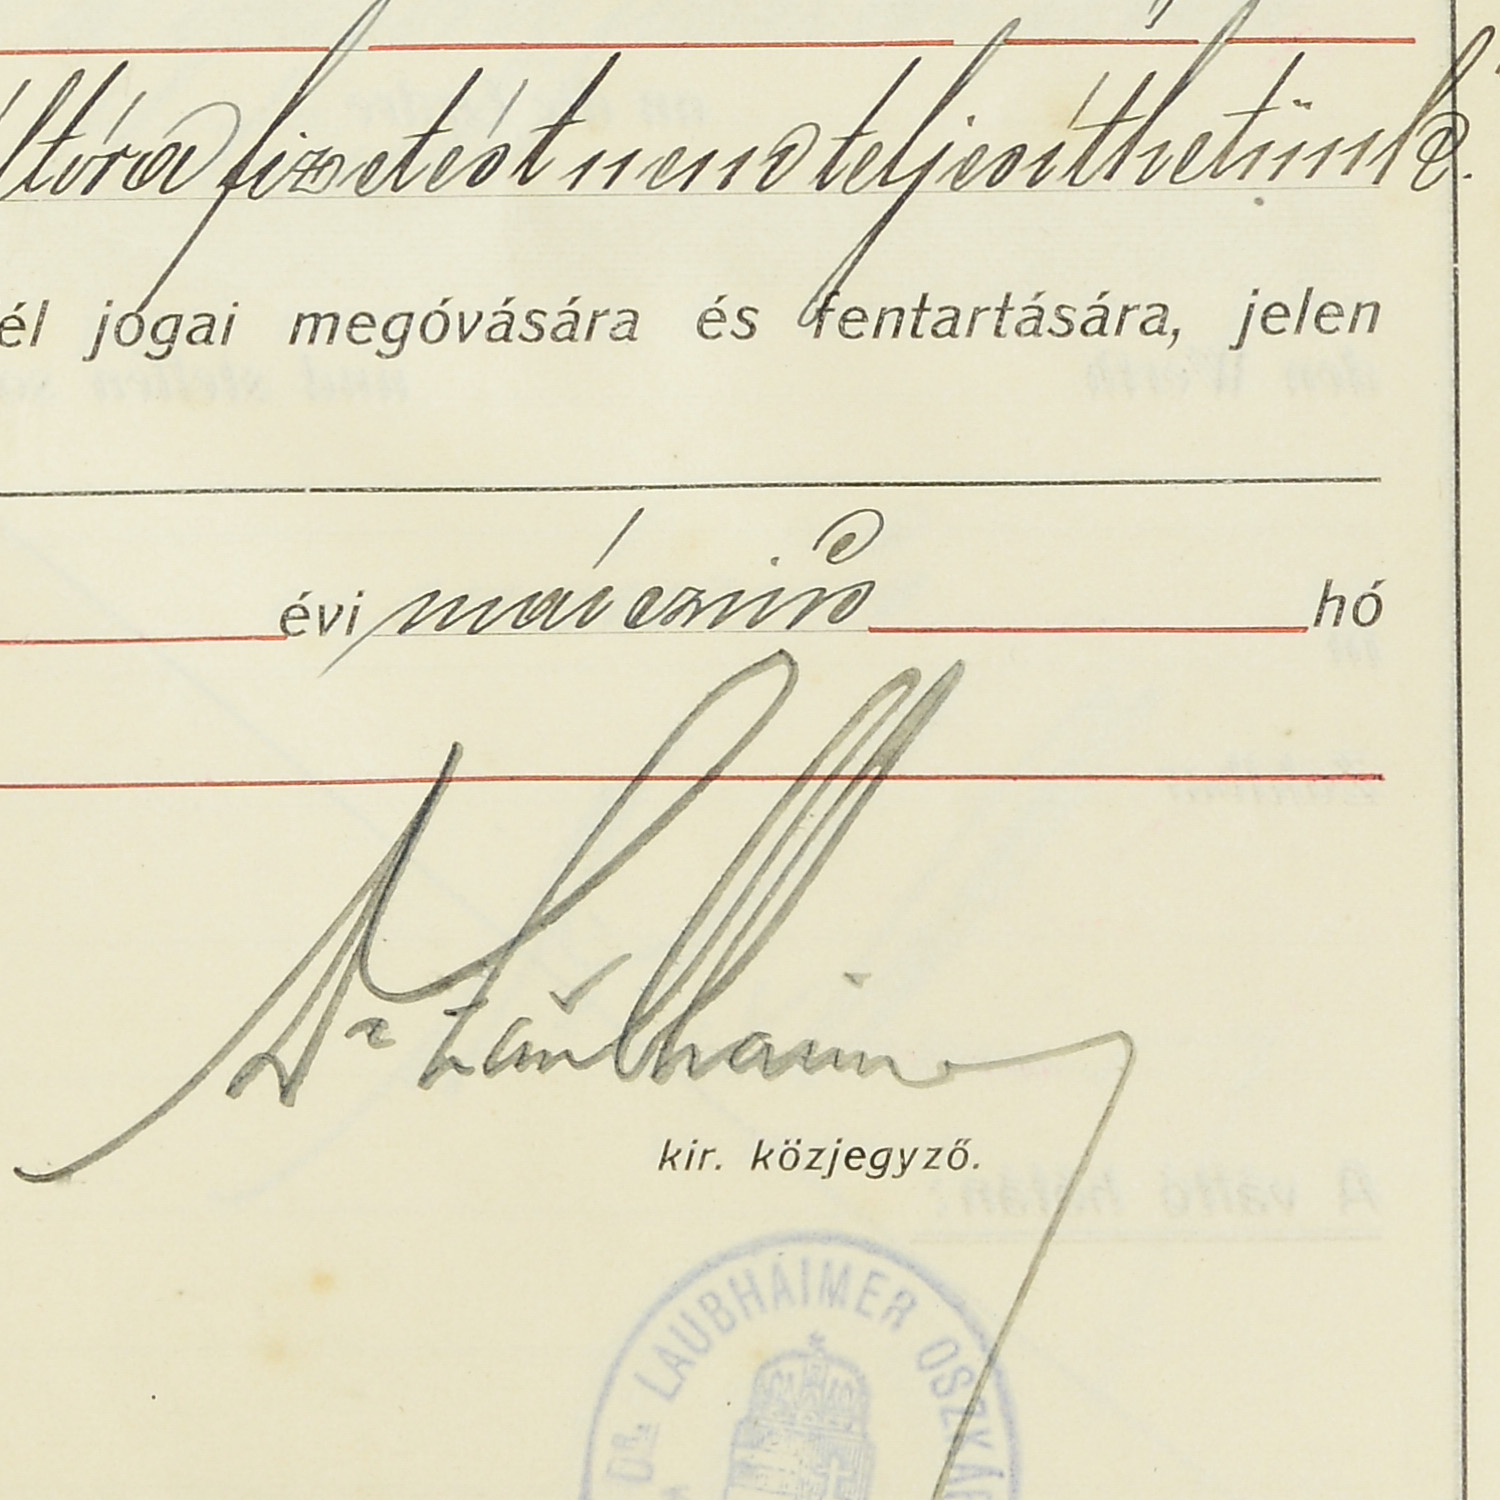 fizetést nem teljesíthetünk.
él jogai megóvására és fentartására, jelen
évi márczius hó
Dr Laubhaimer
kir. közjegyző.
DR. LAUBHAIMER OSZKÁR
A váltó hátán: